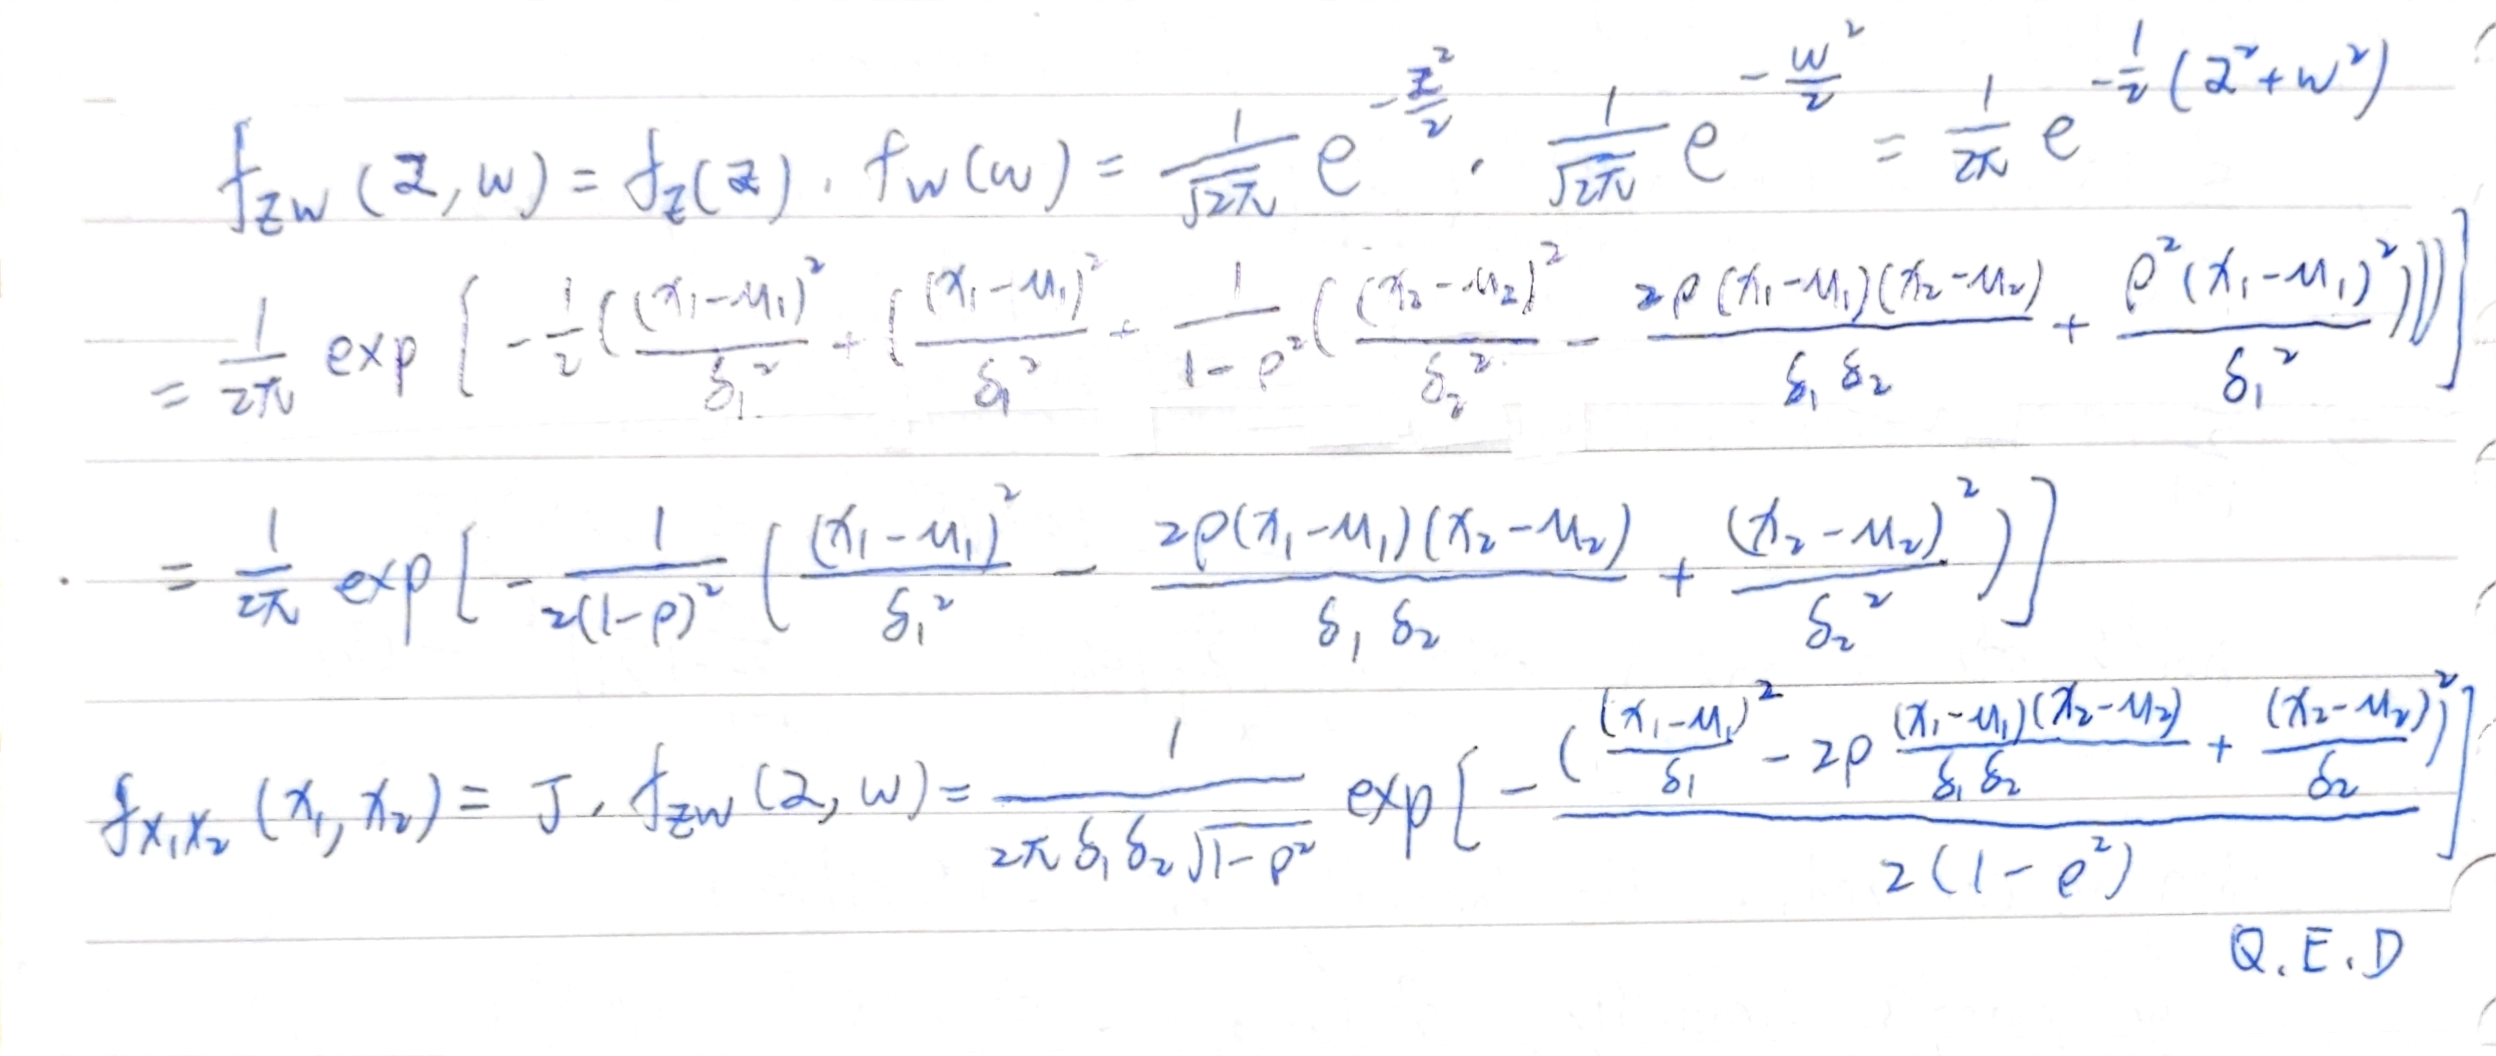 f_ZW (z, w) = f_Z(z) · f_W(w) = 1/√2π e^(-z²/2) · 1/√2π e^(-w²/2) = 1/2π e^(-1/2 (z² + w²))
= 1/2π exp [ -1/2 ( (x₁-μ₁)²/δ₁² + ( (x₁-μ₁)²/δ₁² + 1/(1-ρ²) ( (x₂-μ₂)²/δ₂² - 2ρ(x₁-μ₁)(x₂-μ₂)/δ₁δ₂ + ρ²(x₁-μ₁)²/δ₁² ))) ]
= 1/2π exp [ - 1/2(1-ρ)² ( (x₁-μ₁)²/δ₁² - 2ρ(x₁-μ₁)(x₂-μ₂)/δ₁δ₂ + (x₂-μ₂)²/δ₂² ) ]
f_X₁X₂ (x₁, x₂) = J · f_ZW (z, w) = 1/(2πδ₁δ₂√(1-ρ²)) exp [ - ( (x₁-μ₁)²/δ₁ - 2ρ (x₁-μ₁)(x₂-μ₂)/δ₁δ₂ + (x₂-μ₂)²/δ₂ ) / 2(1-ρ²) ]
Q.E.D